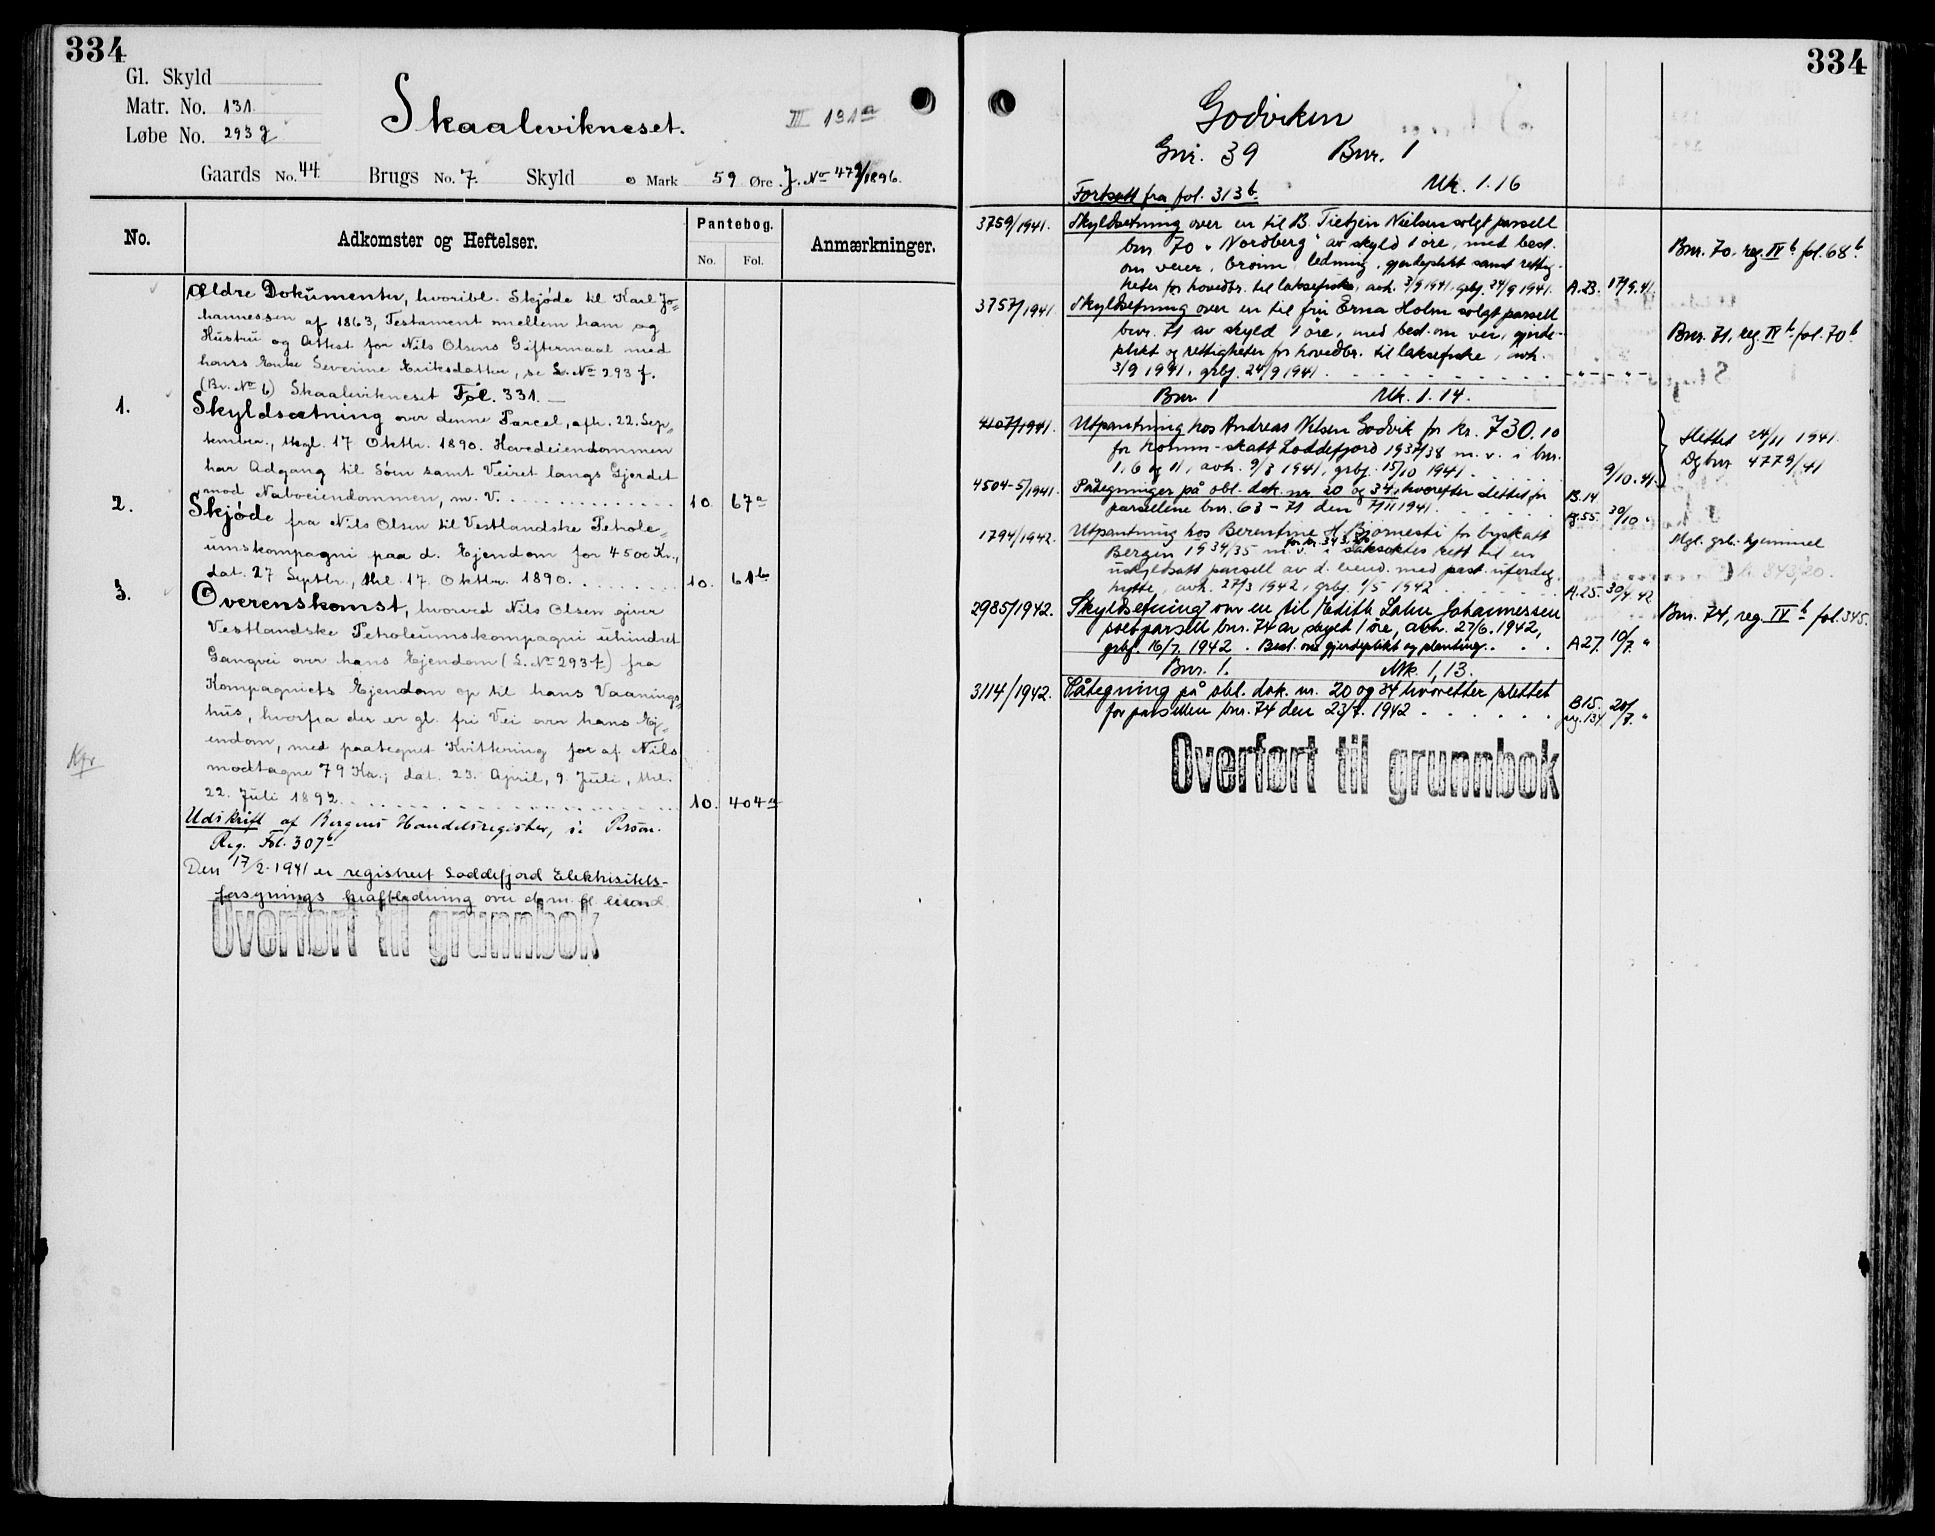 334
Gl. Skyld
Matr. No. 131.
Løbe No. 293 g
Skaalevikneset.
III 131 a
Gaards No. 44. Brugs No. 7. Skyld 0 Mark 59 Øre. J. No 479/1896.
No. Adkomster og Heftelser. Pantebog. No. Fol. Anmærkninger.
Ældre Dokumenter, hvoribl. Skjøde til Karl Jo„
hannessen af 1863, Testament mellem ham og
Hustru og Attest for Nils Olsens Giftermaal med
hans Enke Severine Eriksdatter, se L. No 293 f.
(Br. No 6) Skaalevikneset Fol. 331. —
1. Skyldsætning over denne Parcel, afh. 22. Sep„
tember, thgl. 17 Oktbr. 1890. Hovedeiendommen
har Adgang til Søen samt Veiret langs Gjerdet
mod Naboeiendommen, m. V. 10. 67 a
2. Skjøde fra Nils Olsen til Vestlandske Petrole„
umskompagni paa d. Ejendom for 4500 Kr.,
dat. 27 Septbr., thl. 17. Oktbr. 1890. 10. 61 b
3. Overenskomst, hvorved Nils Olsen giver
Vestlandske Petroleumskompagni uhindret
Gangvei over hans Ejendom (L. No 293 f) fra
Kompagniets Ejendom op til hans Vaanings„
hus, hvorfra der er gl. fri Vei over hans Ej„
endom, med paategnet Kvittering for af Nils
modtagne 79 Kr.; dat. 23. April, 9 Juli, thl.
22. Juli 1892. 10. 404 a
Udskrift af Bergens Handelsregister, se Person.
Reg. Fol. 307 b
Den 17/2-1941 er registrert Loddefjord Elektrisitets-
forsynings kraftledning over d. m. fl. eiend.
Overført til grunnbok
334
Godviken
Gnr. 39 Bnr. 1
Fortsatt fra fol. 313 b. Mk. 1.16
3759/1941. Skyldsetning over en til B. Tietjen Nielsen solgt parsell
bnr. 70 „Nordberg" av skyld 1 øre, med best.
om veier, brønn, ledning, gjerdeplikt samt rettig-
heter for hovedbr. til laksefiske, avh. 3/9 1941, grbj. 24/9 1941. A.23. 17/9.41. Bnr. 70. reg. IV b fol. 68 b
3757/1941 Skyldsetning over en til fru Erna Holm solgt parsell
bnr. 71 av skyld 1 øre, med best. om vei, gjerde-
plikt og rettigheter for hovedbr. til laksefiske, avh.
3/9 1941, grbj. 24/9 1941. - " - " - " - Bnr. 71, reg. IV b fol. 70 b
Bnr. 1 Mk. 1.14.
4107/1941. Utpantning hos Andreas Nilsen Godvik for kr. 730.10
for komm-skatt Loddefjord 1937/38 m. v. i bnr.
1, 6 og 11, avh. 9/8 1941, grbj. 15/10 1941. 9/10.41. Slettet 24/11 1941. Dgbnr 4779/41
4504-5/1941. Påtegninger på obl. dok. nr. 20 og 34, hvoretter slettet for
parsellene bnr. 63-71 den 7/11 1941. B.14. p.55. 30/10 "
1794/1942. Utpantning hos Berentine H. Bjørnesti for byskatt
for kr. 343.20
Bergen 1934/35 m. v. i saksøktes rett til en
uskyldsatt parsell av d. eiend. med påst. uferdig
hytte, avh. 27/3 1942, grbj. 1/5 1942. A.25. 30/4 42 Mgl. grb. hjemmel
kr. 343/20.
2985/1942. Skyldsetning over en til Edith Lahn Johannessen
solgt parsell bnr. 74 av skyld 1 øre, avh. 27/6. 1942,
grbj. 16/7. 1942. Best. om gjerdeplikt og planting. A 27. 10/7. " Bnr. 74, reg. IV b fol. 345.
Bnr. 1. Mk. 1,13.
3114/1942. Påtegning på obl. dok. nr. 20 og 34 hvoretter slettet
for parsellen bnr. 74 den 23/7. 1942 B15. pg. 134 20/7. "
Overført til grunnbok